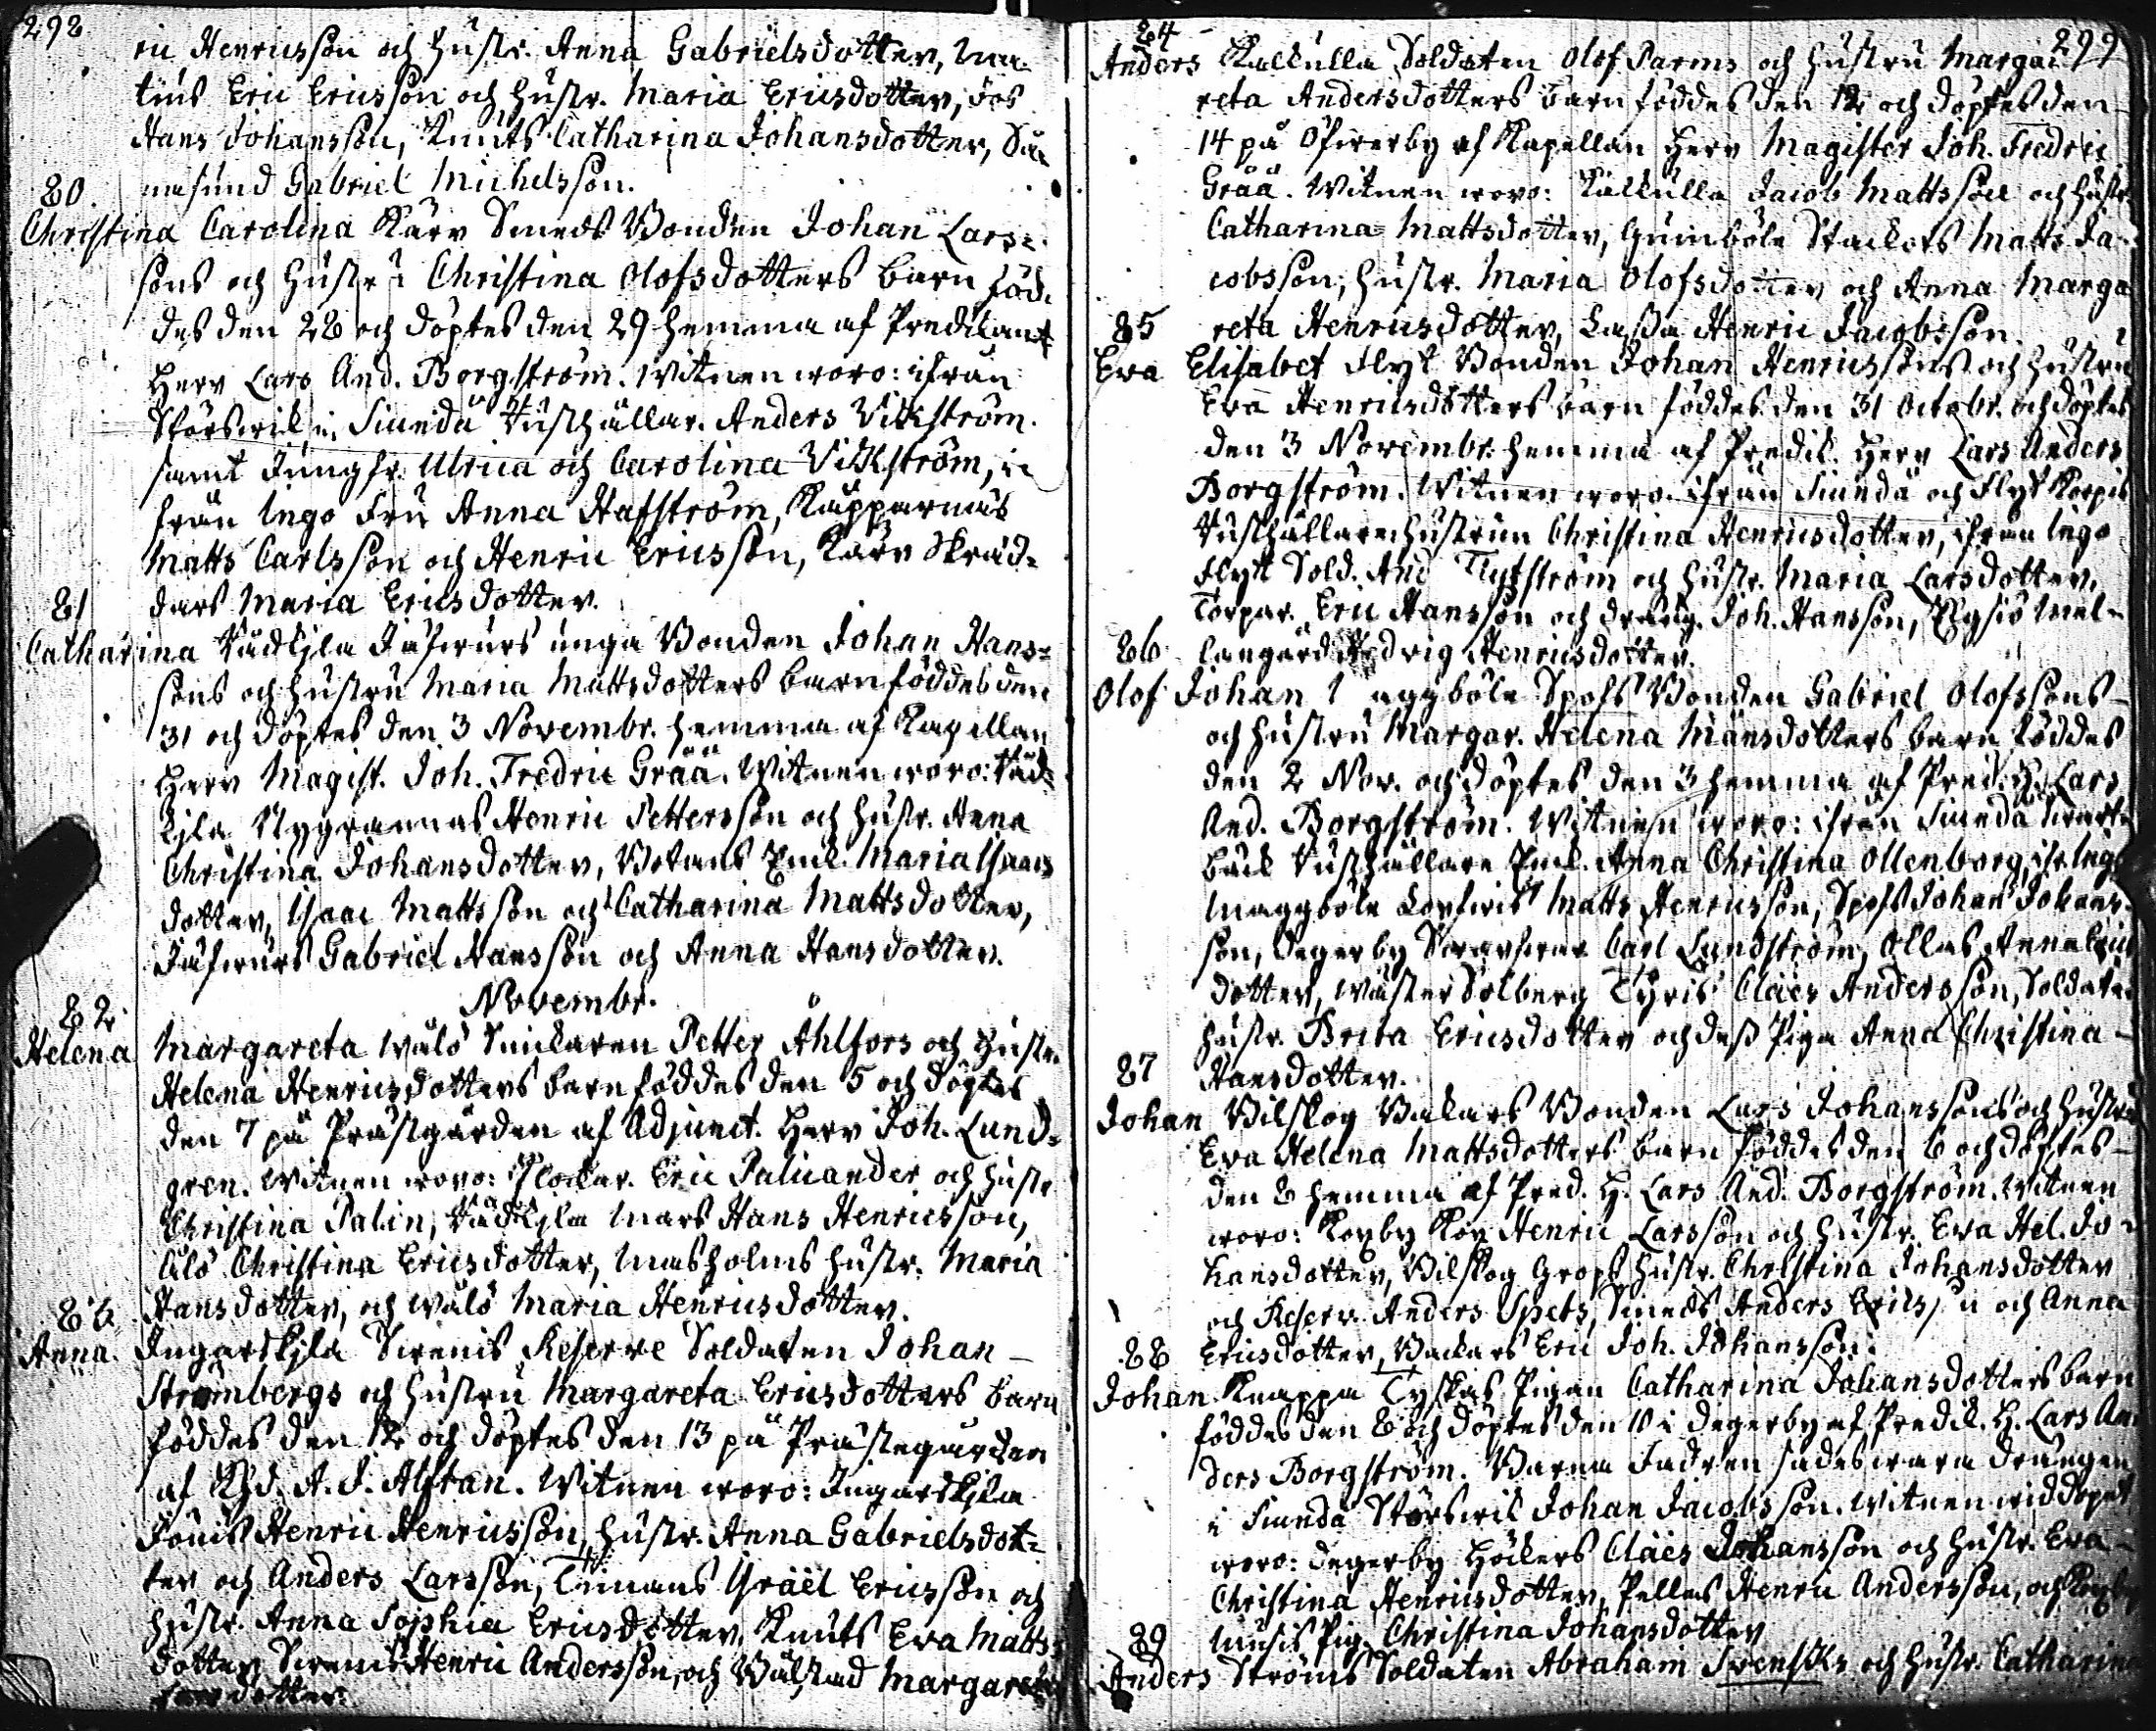 298
ric Henricsson och hustr. Anna Gabrielsdotter,
tius Eric Ericsson och hustr. Maria Ericsdotter,
Hans Johansson, Knuts Catharina Johansdotter,
Gabriel Michelsson.
80.
Christina Carolina Kärr Smeds Bonden Johan Lars-
sons och hustr. Christina Olofsdotters barn föd-
des den 28 och döptes den 29 hemma af Predikant
Herr Lars And. Borgström. Witnen woro: ifrån
Störswik i Siundå Rusthållar. Anders Wikström
samt Jungfr. Ulrica och Carolina Wikström, i-
från Ingo Fru Anna Hafström, Kapparnäs
Matts Carlsson och Henric Ericsson, Kärr Skräd-
dars Maria Ericsdotter.
81
Catharina Wädkjla unga Bonden Johan Hans-
sons och hustru Maria Mattsdotters barn föddes den
31 och döptes den 3 Novembr. hemma af Kapellan
Herr Magist. Joh. Fredric Gråå. Witnen woro: Wäd-
kjla Nygrannas Henric Pettersson och hustr. Anna
Christina Johansdotter, Maria Isaacs
dotter, Isaac Mattsson och Catharina Mattsdotter,
Gabriel Hansson och Anna Hansdotter.
Novembr.
82.
Helena Margareta Wålö Snickaren Petter Åhlfors och hustr.
Helena Henricsdotters barn föddes den 5 och döptes
den 7 på Prästgården af Adjunct. Herr Joh. Lund-
gren. Witnen woro: Klockar. Eric Palicander och hustr.
Christina Palin, Wädkjla Mars Hans Henricsson,
Christina Ericsdotter, Masholms hustr. Maria
Hansdotter, och Wålö Maria Henricsdotter.
83.
Anna. Ingarskjla Reserve Soldaten Johan
Strömbergs och hustru Margareta Ericsdotters barn
föddes den 12 och döptes den 13 på Prästegården
af Khd. A. J. Alftan. Witnen woro: Ingarskjla
Henric Henricsson, hustr. Anna Gabrielsdot-
ter och Anders Larsson, Timans Israël Ericsson och
hustr. Anna Sophia Ericsdotter, Knuts Eva Matts-
dotter, Henric Andersson, och Margareta
dotter.
299
84
Anders Kalkulla Soldaten Olof Parms och hustru Marga-
reta Andersdotters barn föddes den 12 och döptes den
14 på Öfwerby af Kapellan Herr Magister Joh. Fredric
Gråå. Witnen woro: Kalkulla Jacob Mattsson och hustr.
Catharina Mattsdotter, Gumböle Stackars Matts Ja-
cobsson, hustr. Maria Olofsdotter och Anna Marga-
85 reta Henricsdotter, Henric Jacobsson.
Eva Elisabet Flyt Bonden Johan Henricssons och hustru
Eva Henricsdotters barn föddes den 31 Octobr. och döptes
den 3 Novembr. hemma af Predik. Herr Lars Anders
Borgström. Witnen woro: ifrån Siundå och Flyt Korpis
Rusthållarehustrun Christina Henricsdotter, ifrån Ingo
Flyt Sold. And. Flytström och hustr. Maria Larsdotter,
Torpar. Eric Hansson och dräng. Joh. Hansson, Mel-
86 langård Hedvig Henricsdotter.
Olof Johan Bonden Gabriel Olofssons
och hustru Margar. Helena Månsdotters barn föddes
den 2 Nov. och döptes den 3 hemma af Pred. H. Lars
And. Borgström. Witnen woro: ifrån Siundå
bäck Rusthållare Enk. Anna Christina Ollenborg, ifr. Ingo
Maggböle Matts Henricsson, Spofs Johan Johans-
son, Degerby Carl Lundström, Ollas Anna Erics
dotter, Wäster Solberg Tyris Claes Andersson, Soldate-
hustr. Brita Ericsdotter och dess Piga Anna Christina
87 Hansdotter.
Johan Bilskog Backars Bonden Lars Johanssons och hustru
Eva Helena Mattsdotters barn föddes den 6 och döptes
den 8 hemma af Pred. H. Lars And. Borgström. Witnen
woro: Kopby Henric Larsson och hustr. Eva Hel. Jo-
hansdotter, Bilskog Grops hustr. Christina Johansdotter
och Reserv. Anders Spets, Smeds Anders Ericsson och Anna
88 Ericsdotter, Backars Eric Joh. Johansson.
Johan Knappa Tyskas Pigan Catharina Johansdotters barn
föddes den 8 och döptes den 10 i Degerby af Predik. H. Lars An-
ders Borgström. Barna Fadren sades wara drängen
i Siundå Störswik Johan Jacobsson. Witnen wid dopet
woro: Degerby Höckers Claes Johansson och hustr. Eva
Christina Henricsdotter, Pellas Henric Andersson, och Kopby
89 Pig. Christina Johansdotter
Anders Ströms Soldaten Abraham Svensks och hustr. Catharina